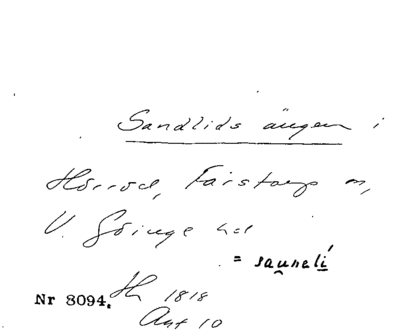 Sandlids ängen i
Hörröd, Färstorp sn,
V. Göinge hd
= sauneli
Nr 8094. Sth 1818
Akt 10